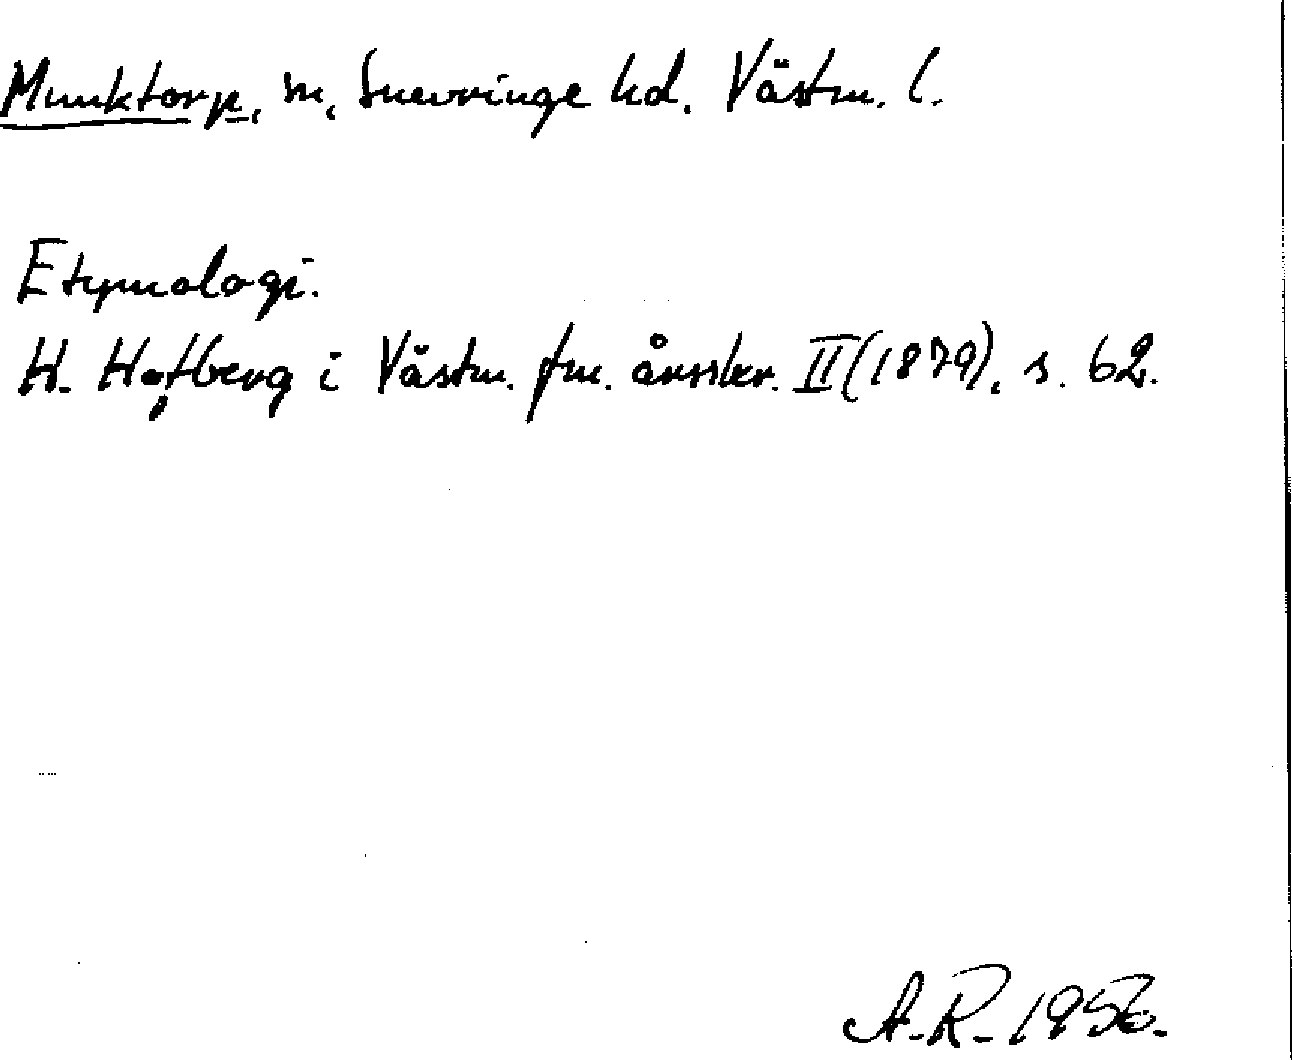 Munktorp, sn, Snevringe hd. Västm. l.
Etymologi.
H. Hofberg i Västm. fm. årsskr. II (1879), s. 62.
A.R. 1956.